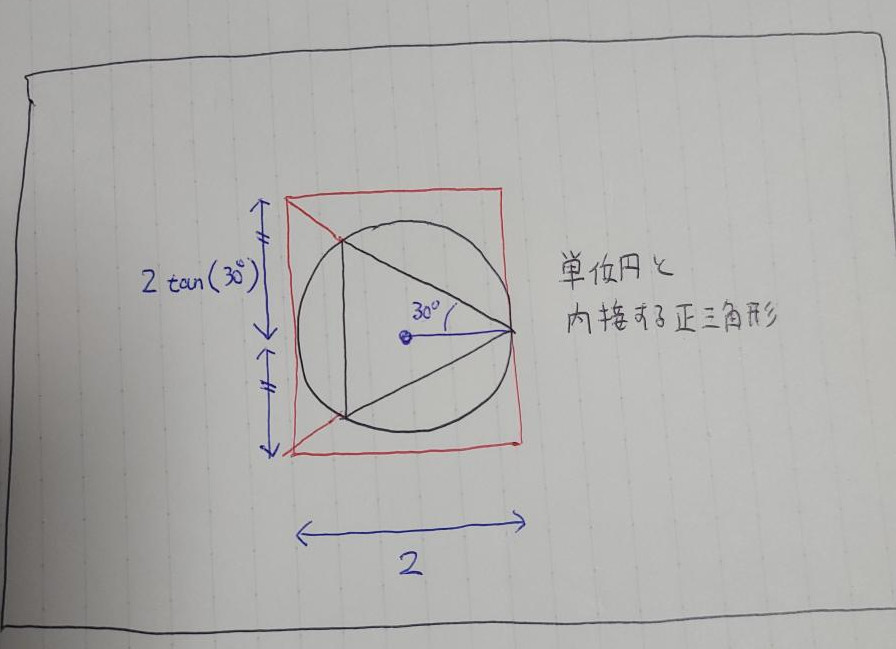 2 tan(30°)
30°
単位円と
内接する正三角形
2